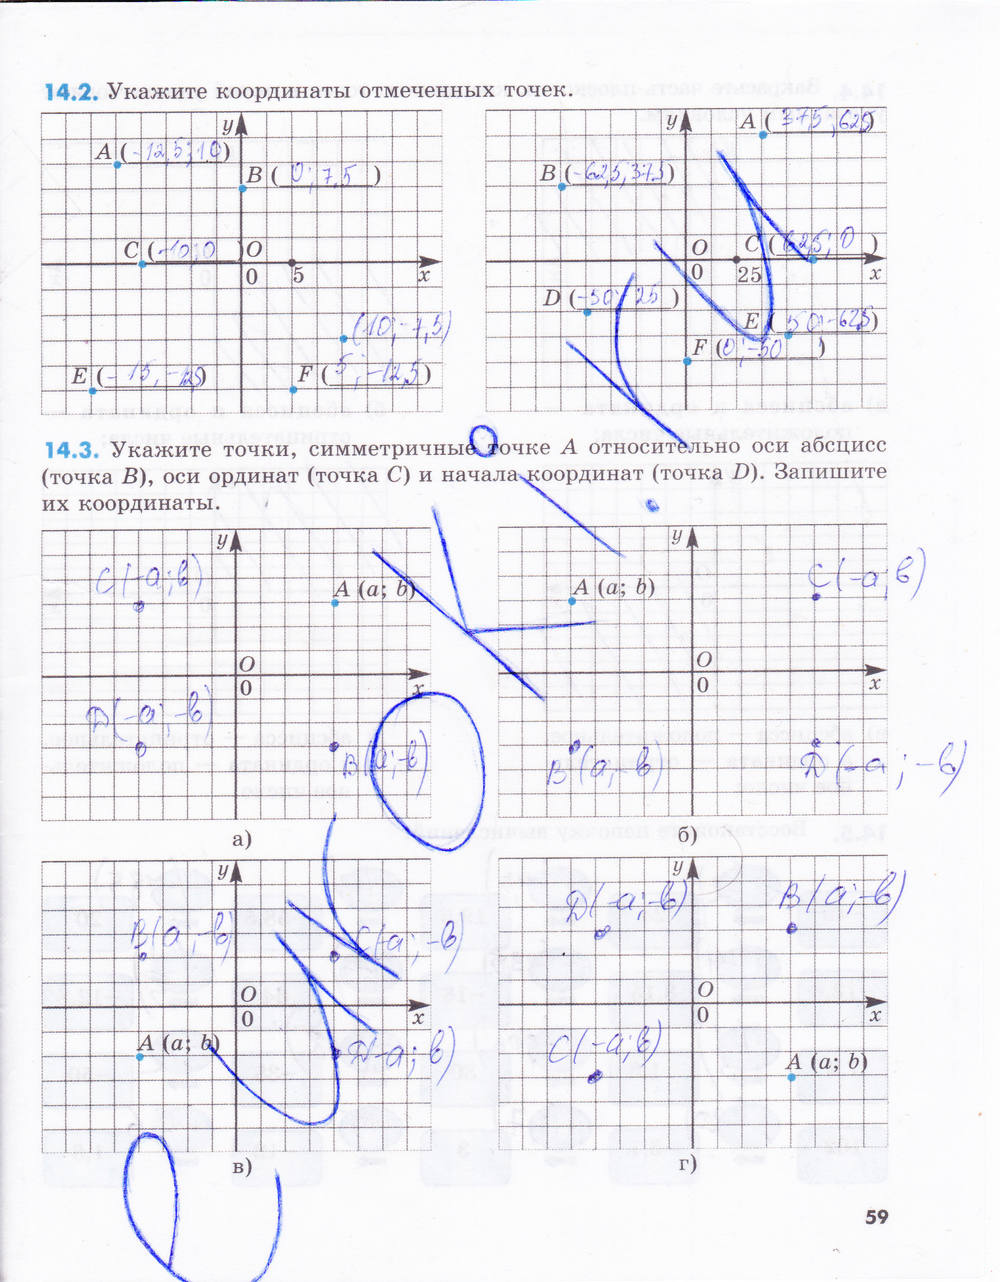 14.2. Укажите координаты отмеченных точек.
y
A (-12,5; 10)
B (0; 7,5)
C (-10; 0)
O
0
5
x
(10; -7,5)
E (-15, -12,5)
F (5; -12,5)
y
A (37,5; 62,5)
B (-62,5; 37,5)
O
C (62,5; 0)
0
25
x
D (-50; -25)
E (50; -62,5)
F (0; -50)
14.3. Укажите точки, симметричные точке A относительно оси абсцисс
(точка B), оси ординат (точка C) и начала координат (точка D). Запишите
их координаты.
y
C(-a; b)
A (a; b)
O
0
x
D(-a; -b)
B(a; -b)
а)
y
A (a; b)
C(-a; b)
O
0
x
B(a; -b)
D(-a; -b)
б)
y
B(a; -b)
C(-a; -b)
O
0
x
A (a; b)
D(-a; b)
в)
y
D(-a; -b)
B(a; -b)
O
0
x
C(-a; b)
A (a; b)
г)
59